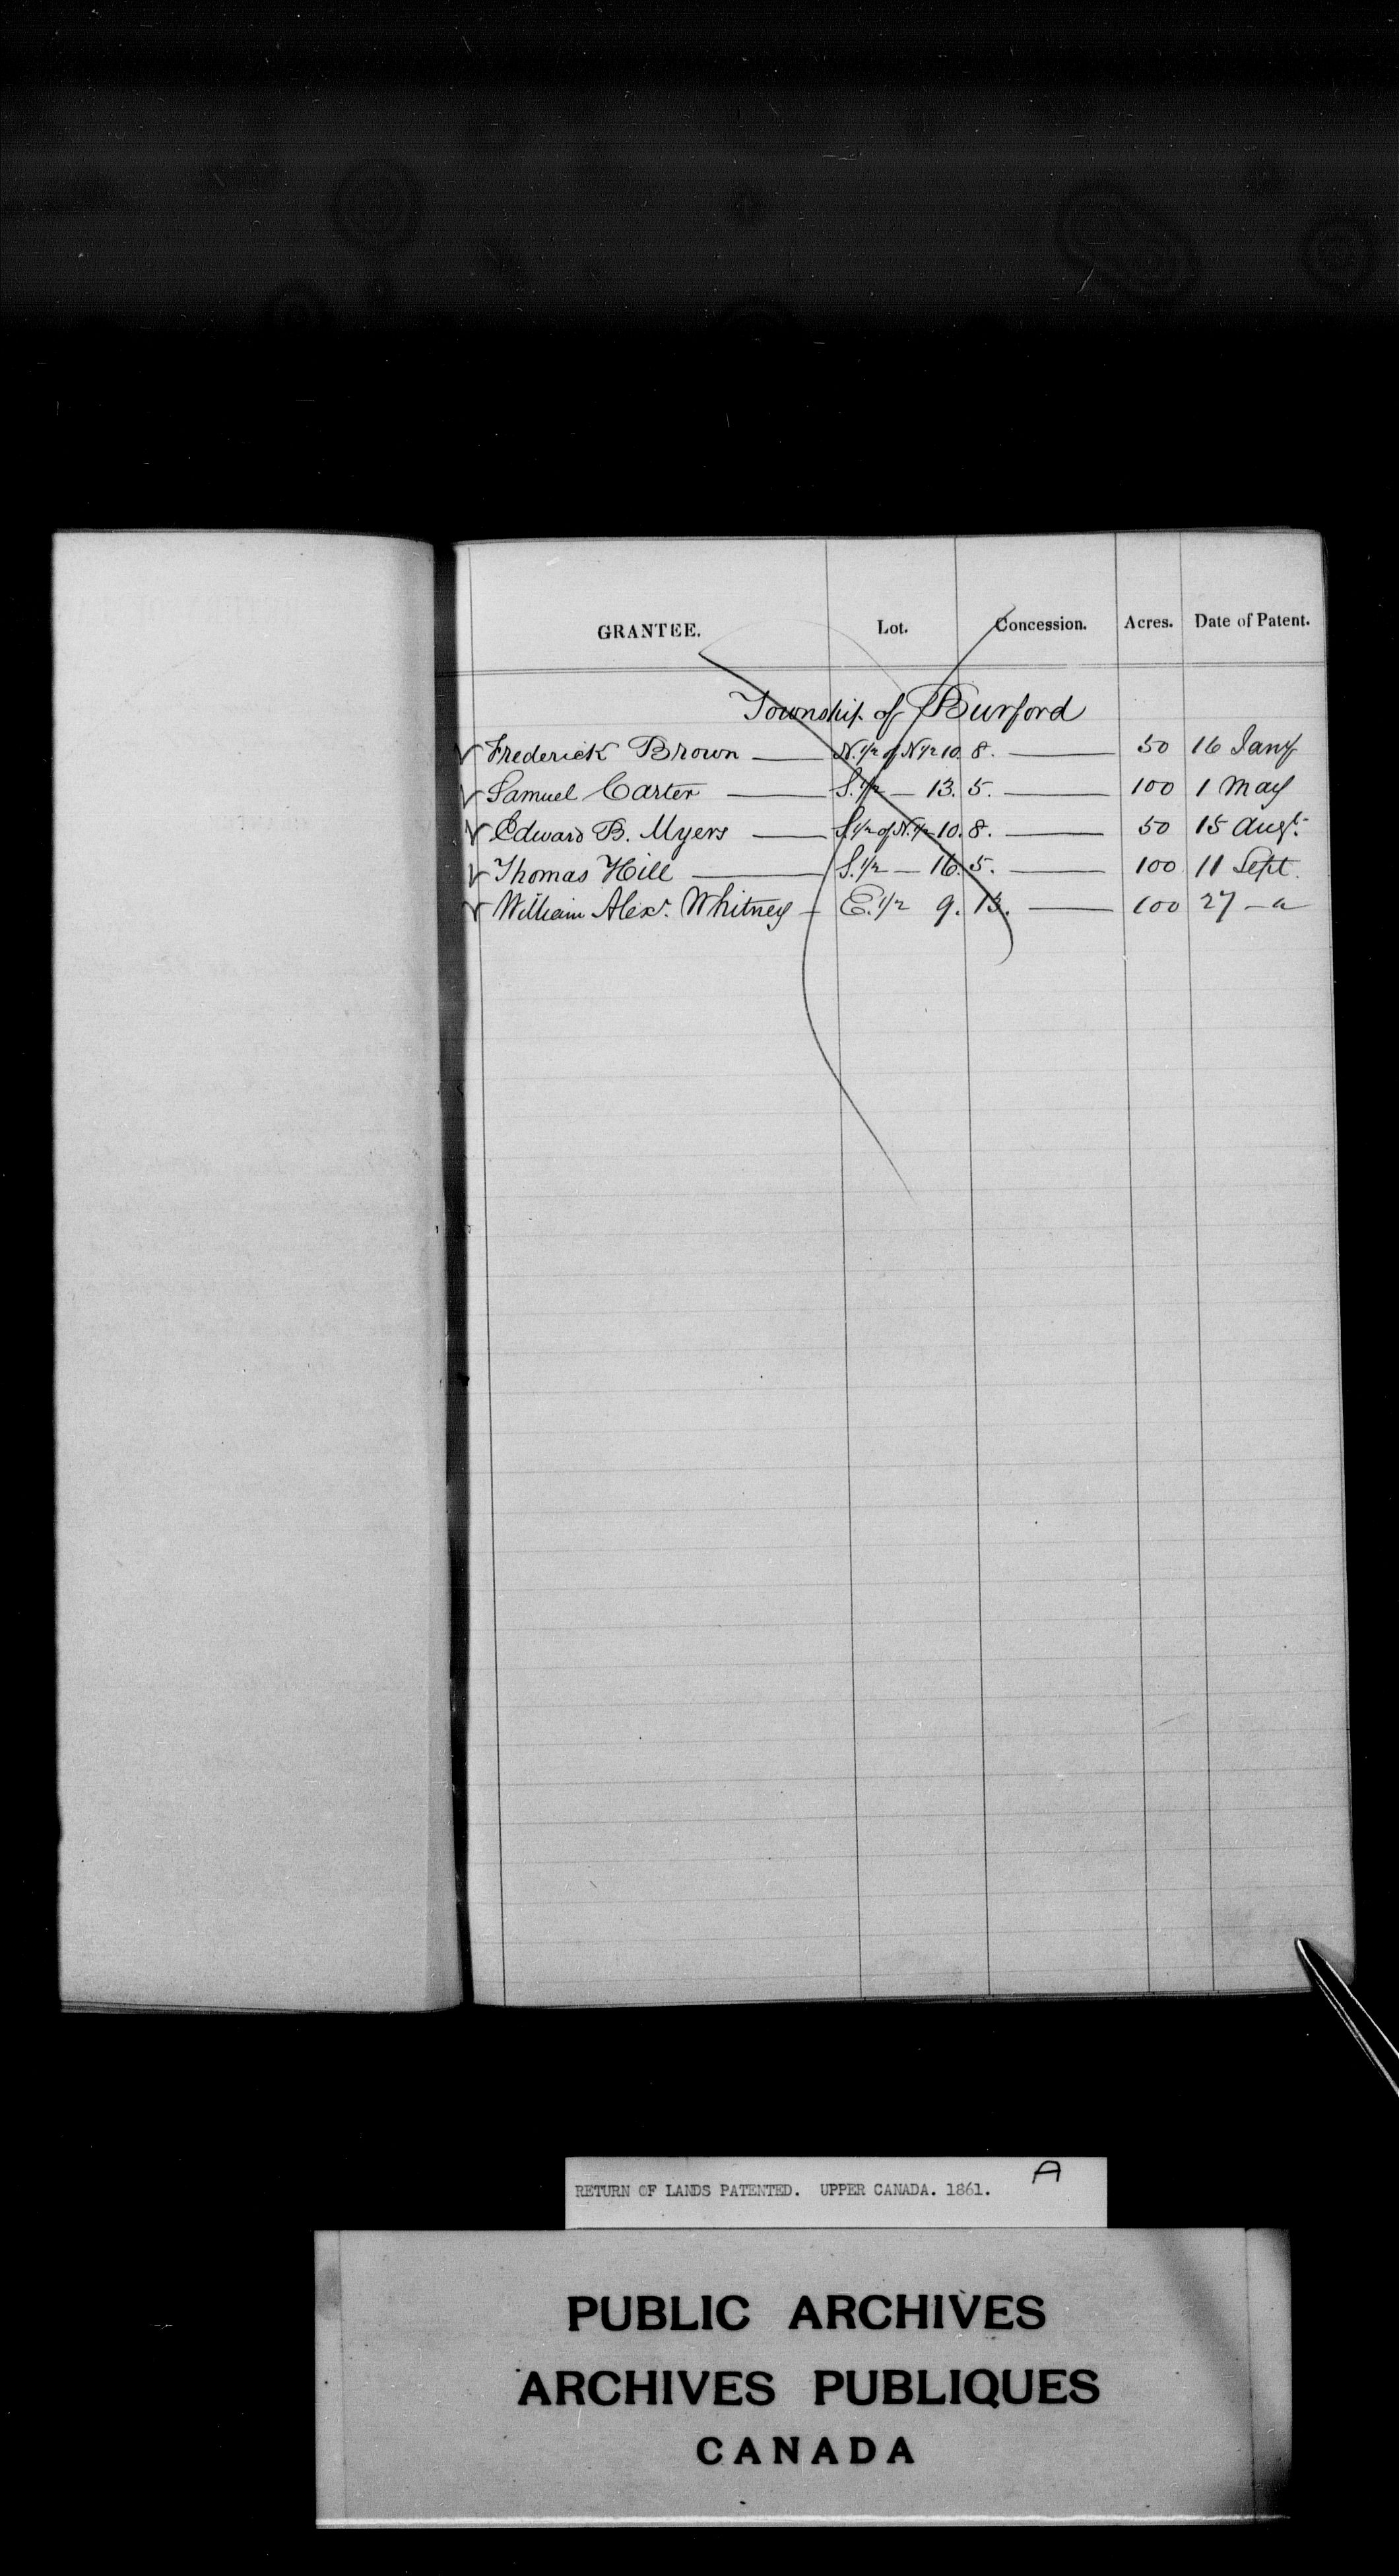 GRANTEE. Lot. Concession. Acres. Date of Patent.
Township of Burford
Frederick Brown — N. 1/2 of N 1/2 10. 8. — 50 16 Jany
Samuel Carter — S. 1/2 — 13. 5. — 100 1 May
Edward B. Myers — S. 1/2 of N. 1/2 10. 8. — 50 15 Augt.
Thomas Hill — S. 1/2 — 16. 5. — 100 11 Sept.
William Alexr. Whitney — E. 1/2 9. 13. — 100 27 —
RETURN OF LANDS PATENTED. UPPER CANADA. 1861. A
PUBLIC ARCHIVES
ARCHIVES PUBLIQUES
CANADA